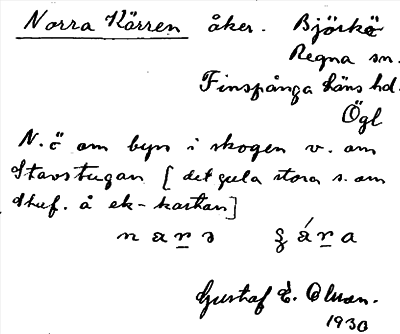 Norra Kärren åker. Björkö
Regna sn.
Finspånga läns hd.
Ögl
N.ö om byn i skogen v. om
Stavstugan [det gula stora s. om
Skuf. å ek-kartan]
Gustaf E. Olsson.
1930